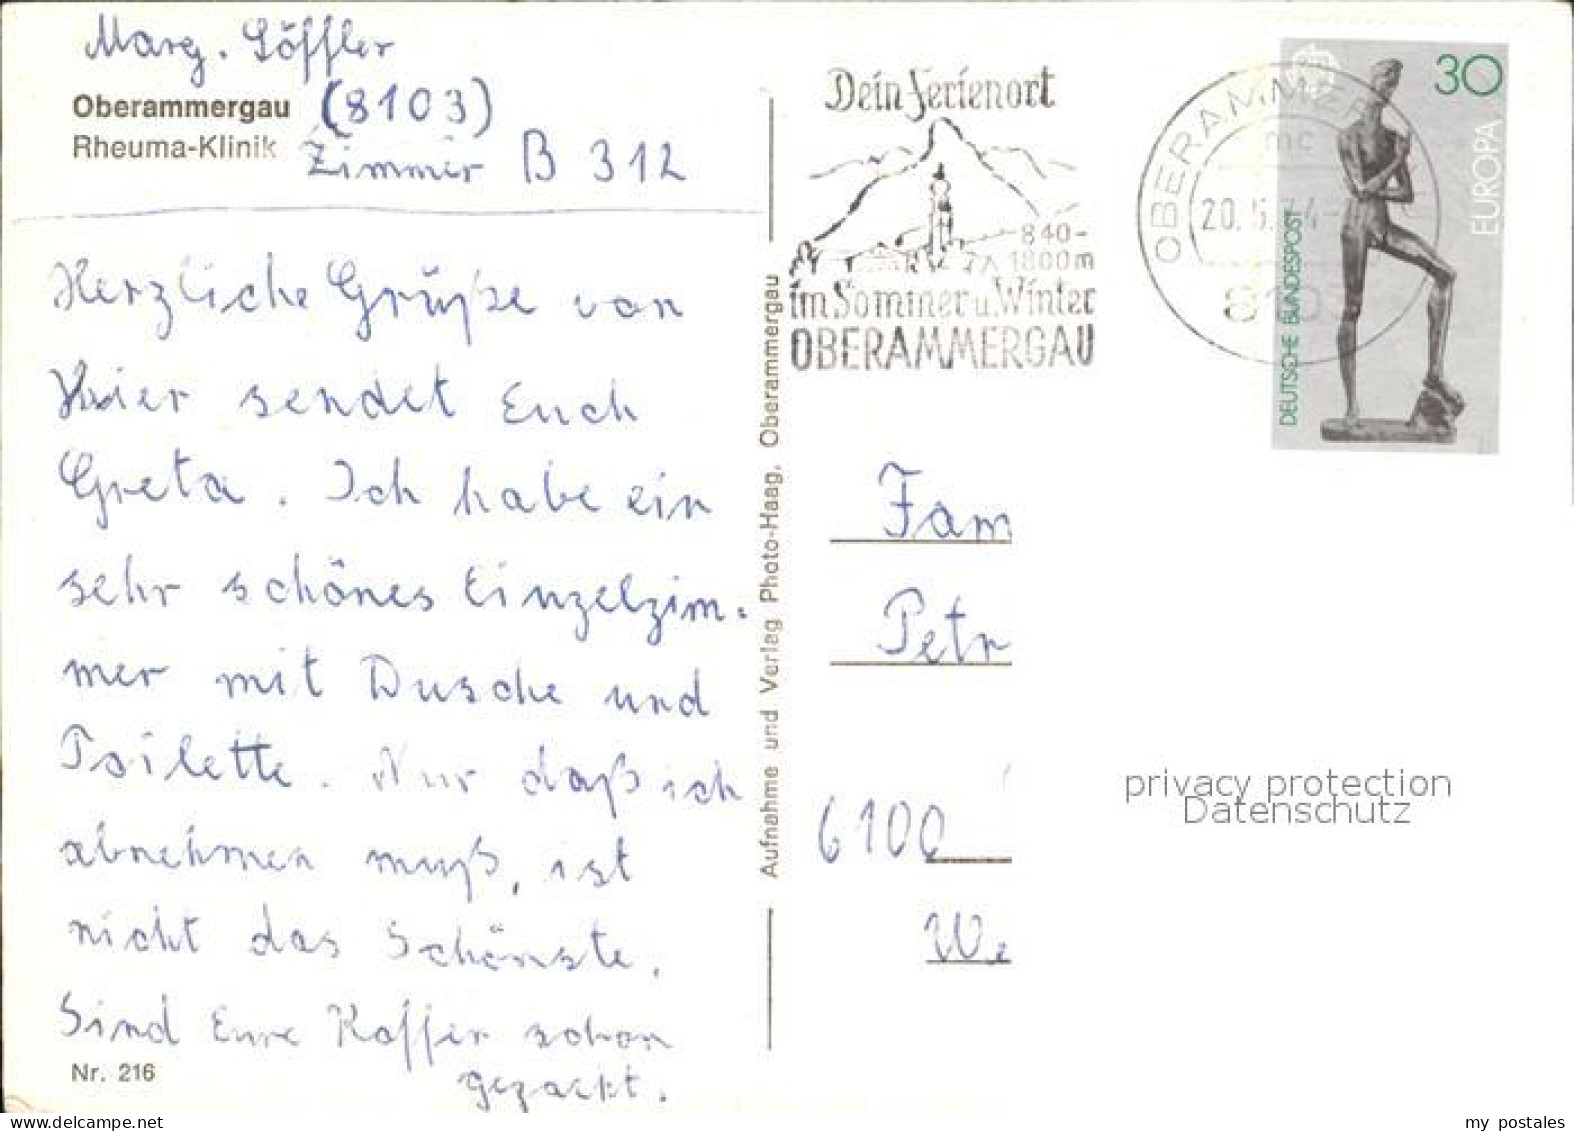 Marg. Löffler
Oberammergau (8103)
Rheuma-Klinik Zimmer B 312
Herzliche Grüße von
hier sendet Euch
Greta. Ich habe ein
sehr schönes Einzelzim-
mer mit Dusche und
Toilette. Nur daß ich
abnehmen muß, ist
nicht das Schönste.
Sind Eure Koffer schon
gepackt.
Nr. 216
Aufnahme und Verlag Photo-Haag, Oberammergau
Dein Ferienort
840-
1800m
im Sommer u. Winter
OBERAMMERGAU
OBERAMMER
mc
20.5. 4-
810
30
EUROPA
DEUTSCHE BUNDESPOST
Fam
Petr
6100
We
privacy protection
Datenschutz
my postales